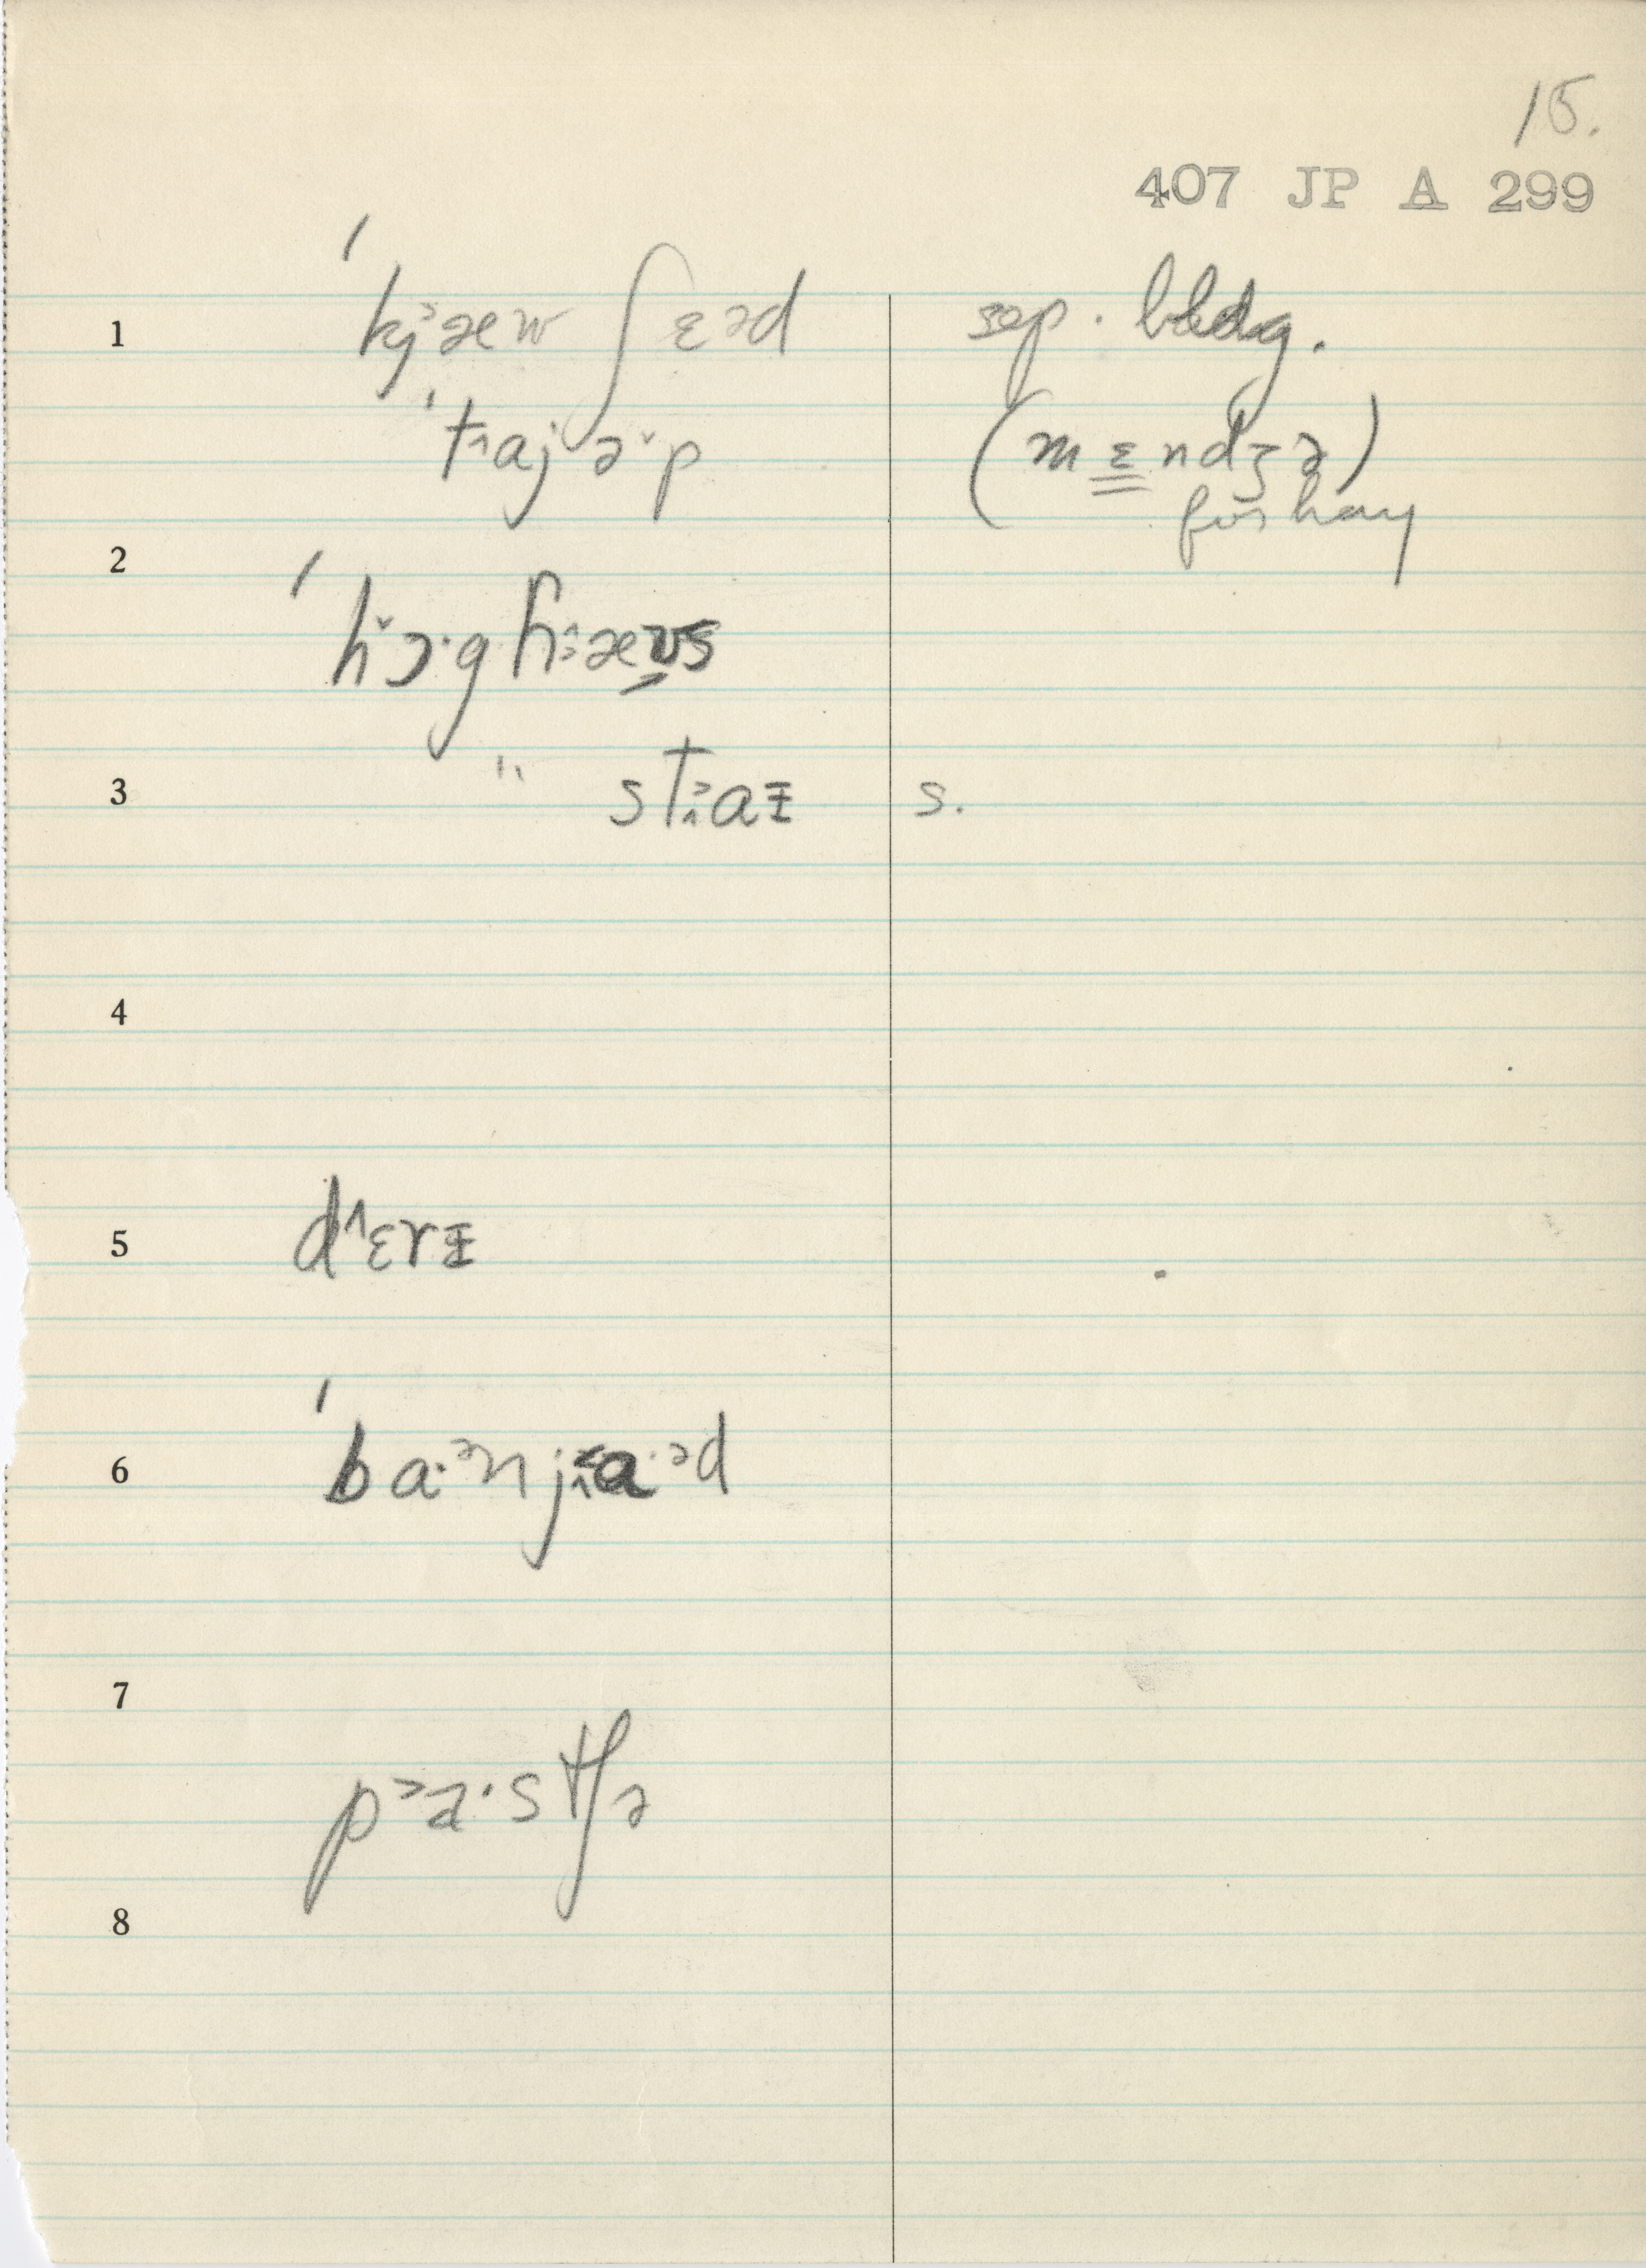 15.
407 JP A 299
1 ˈkj˃æw ʃɛəd sep. bldg.
ˈt˄ajə˅p (mɛndʒə)
for hay
2
ˈh˅ɔ·g h˄æʊs
3 " st˄aɪ s.
4
5 d˄ɛrɪ
6 ˈba·ᵊn j˄a·ᵊd
7
p˃a·stʃə
8